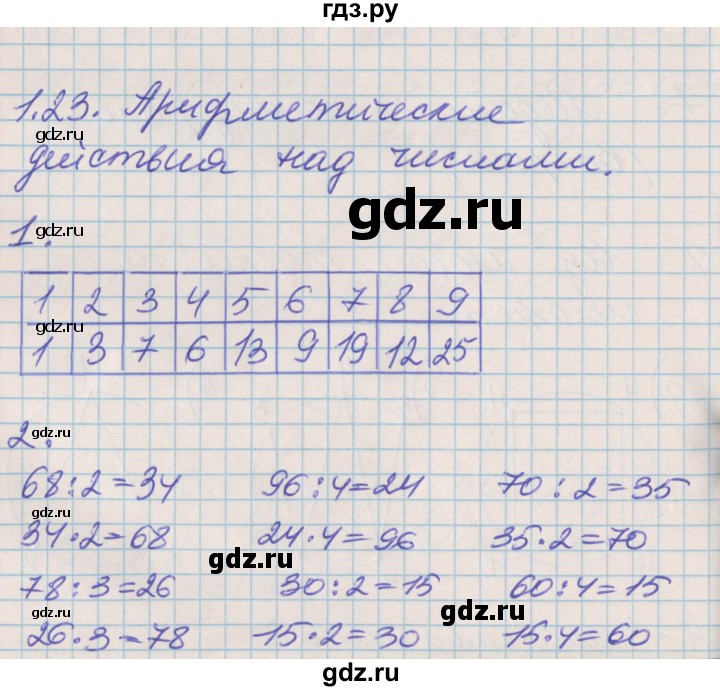 гдз.ру
1.23. Арифметические
gdz.ru
действия над числами.
gdz.ru
1.
gdz.ru
1 2 3 4 5 6 7 8 9
gdz.ru
1 3 7 6 13 9 19 12 25
gdz.ru
2.
gdz.ru
68:2=34 96:4=24 70:2=35
gdz.ru
34·2=68 24·4=96 35·2=70
gdz.ru
gdz.ru
78:3=26 30:2=15 60:4=15
gdz.ru
26·3=78 15·2=30 15·4=60
gdz.ru